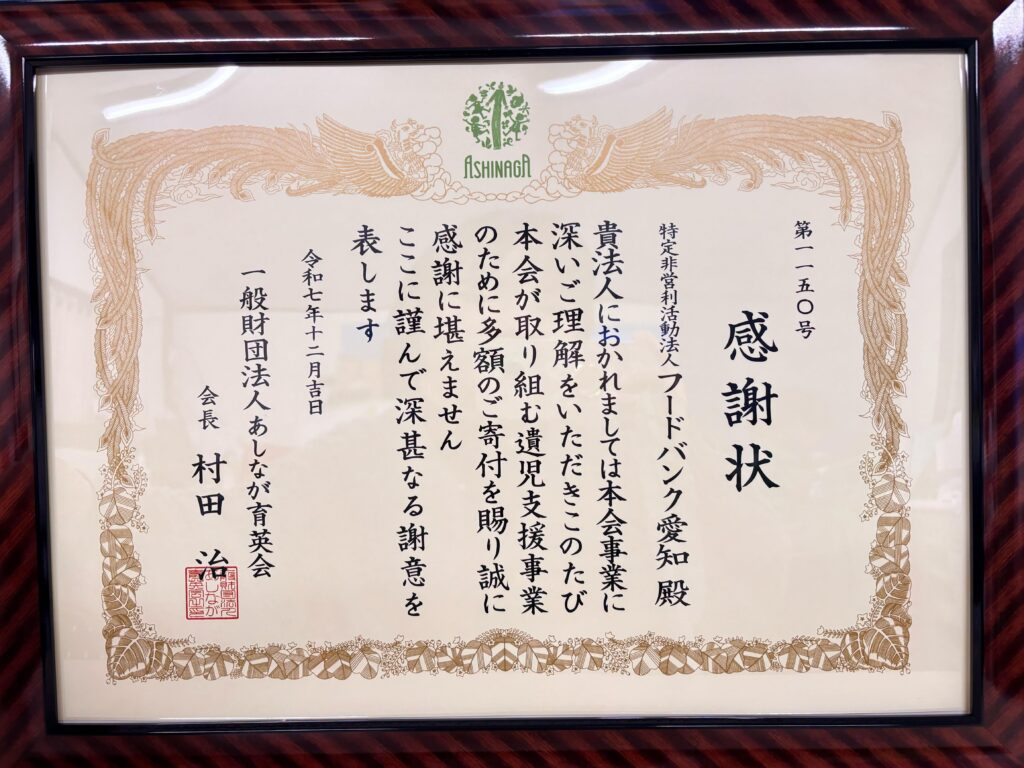 ASHINAGA
第一一五〇号
感謝状
特定非営利活動法人フードバンク愛知 殿
貴法人におかれましては本会事業に
深いご理解をいただきこのたび
本会が取り組む遺児支援事業
のために多額のご寄付を賜り誠に
感謝に堪えません
ここに謹んで深甚なる謝意を
表します
令和七年十二月吉日
一般財団法人あしなが育英会
会長 村田 治